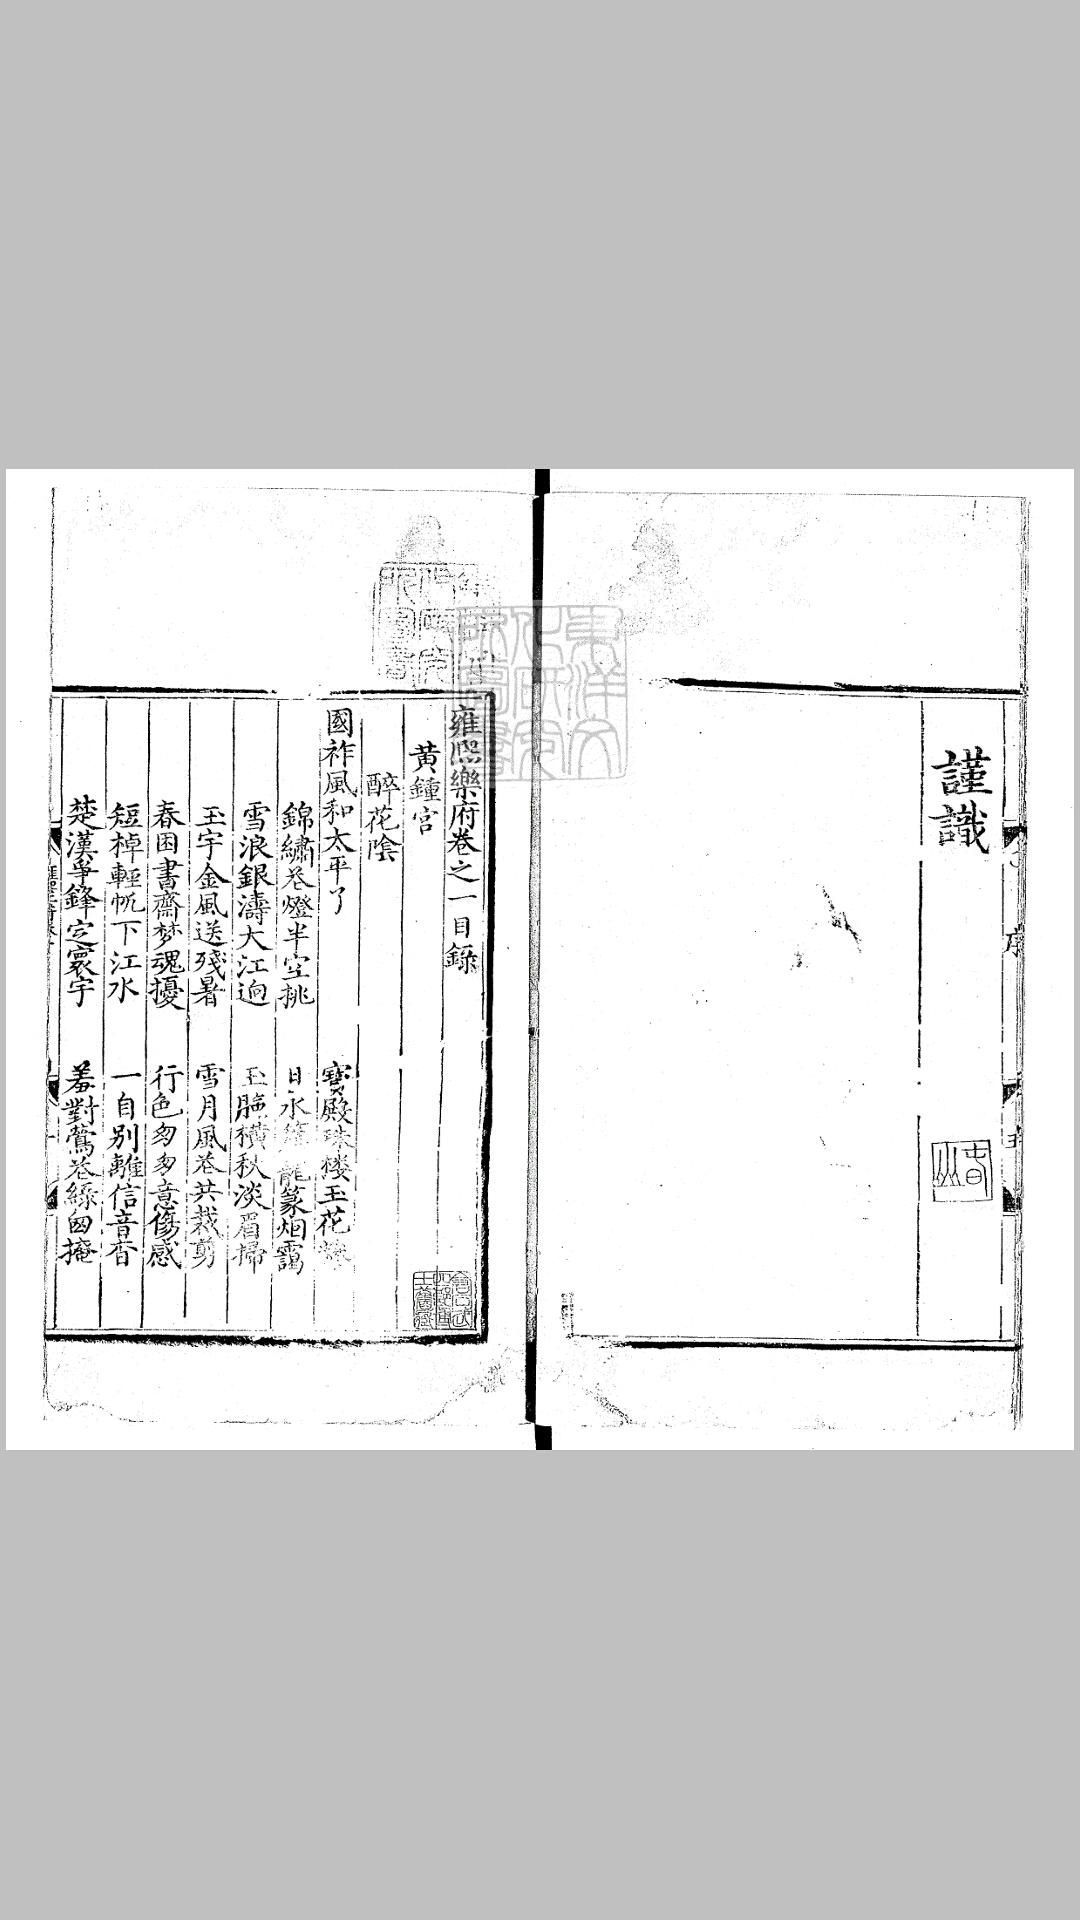 謹識
春山
雍熙樂府卷之一目錄
黃鍾宮
醉花陰
國祚風和太平了
寶殿珠楼玉花
錦繡叢燈半空挑
水 龍篆烟靄
雪浪銀濤大江迥
玉 橫秋淡眉掃
玉宇金風送殘暑
雪月風花共裁剪
春困書齋梦魂擾
行色匆匆意傷感
短棹輕帆下江水
一自別離信音杳
楚漢爭鋒定寰宇
羞對鸞